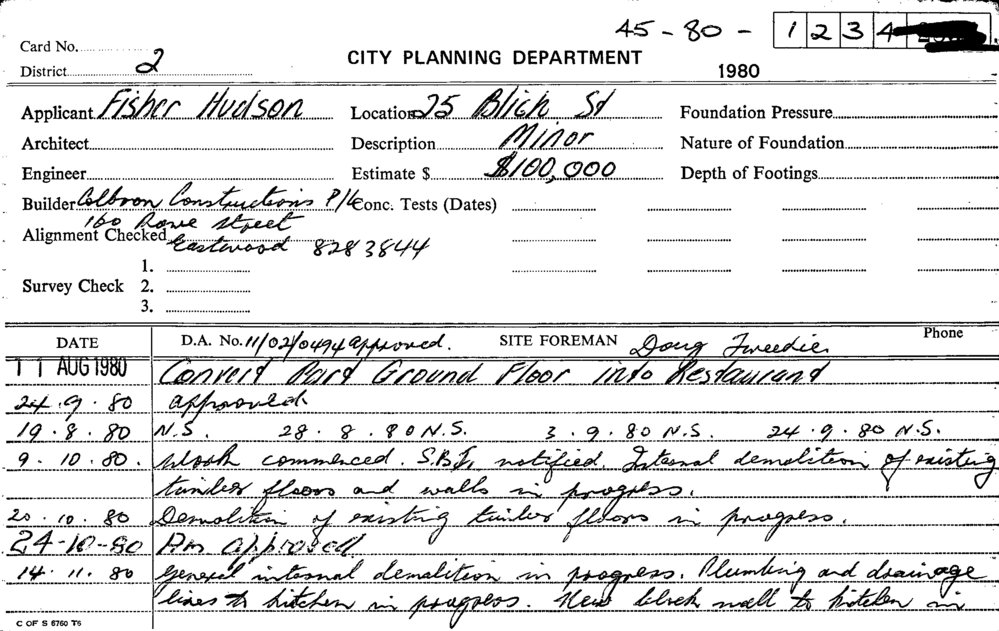 45-80- 1 2 3 4
Card No.
District 2
CITY PLANNING DEPARTMENT
1980
Applicant Fisher Hudson Location 25 Bligh St Foundation Pressure
Architect Description Minor Nature of Foundation
Engineer Estimate $ $100,000 Depth of Footings
Builder Colbron Constructions P/L Conc. Tests (Dates)
160 Rowe Street
Alignment Checked Eastwood 828 3844
1.
Survey Check 2.
3.
DATE D.A. No. 11/02/0494 approved. SITE FOREMAN Doug Tweedie Phone
11 AUG 1980 Convert Part Ground Floor into Restaurant
24.9.80 approved
19.8.80 N.S. 28.8.80 N.S. 3.9.80 N.S. 24.9.80 N.S.
9.10.80. Work commenced. notified. Internal demolition of existing
timber floors and walls in progress.
20.10.80 Demolition of existing timber floors in progress.
24-10-80 approved
14.11.80 General internal demolition in progress. Plumbing and drainage
lines to kitchen in progress. New block wall to kitchen in
C OF S 6760 T6